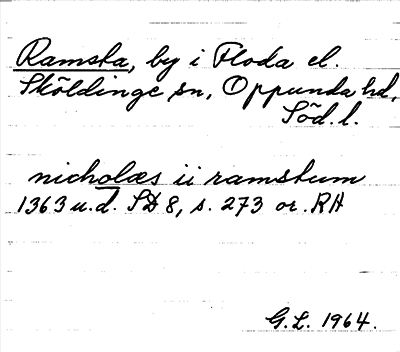 Ramsta, by i Floda el.
Sköldinge sn, Oppunda hd,
Söd. l.
nicholæs ii ramstum
1363 u.d. SD 8, s. 273 or. RA
G.L. 1964.